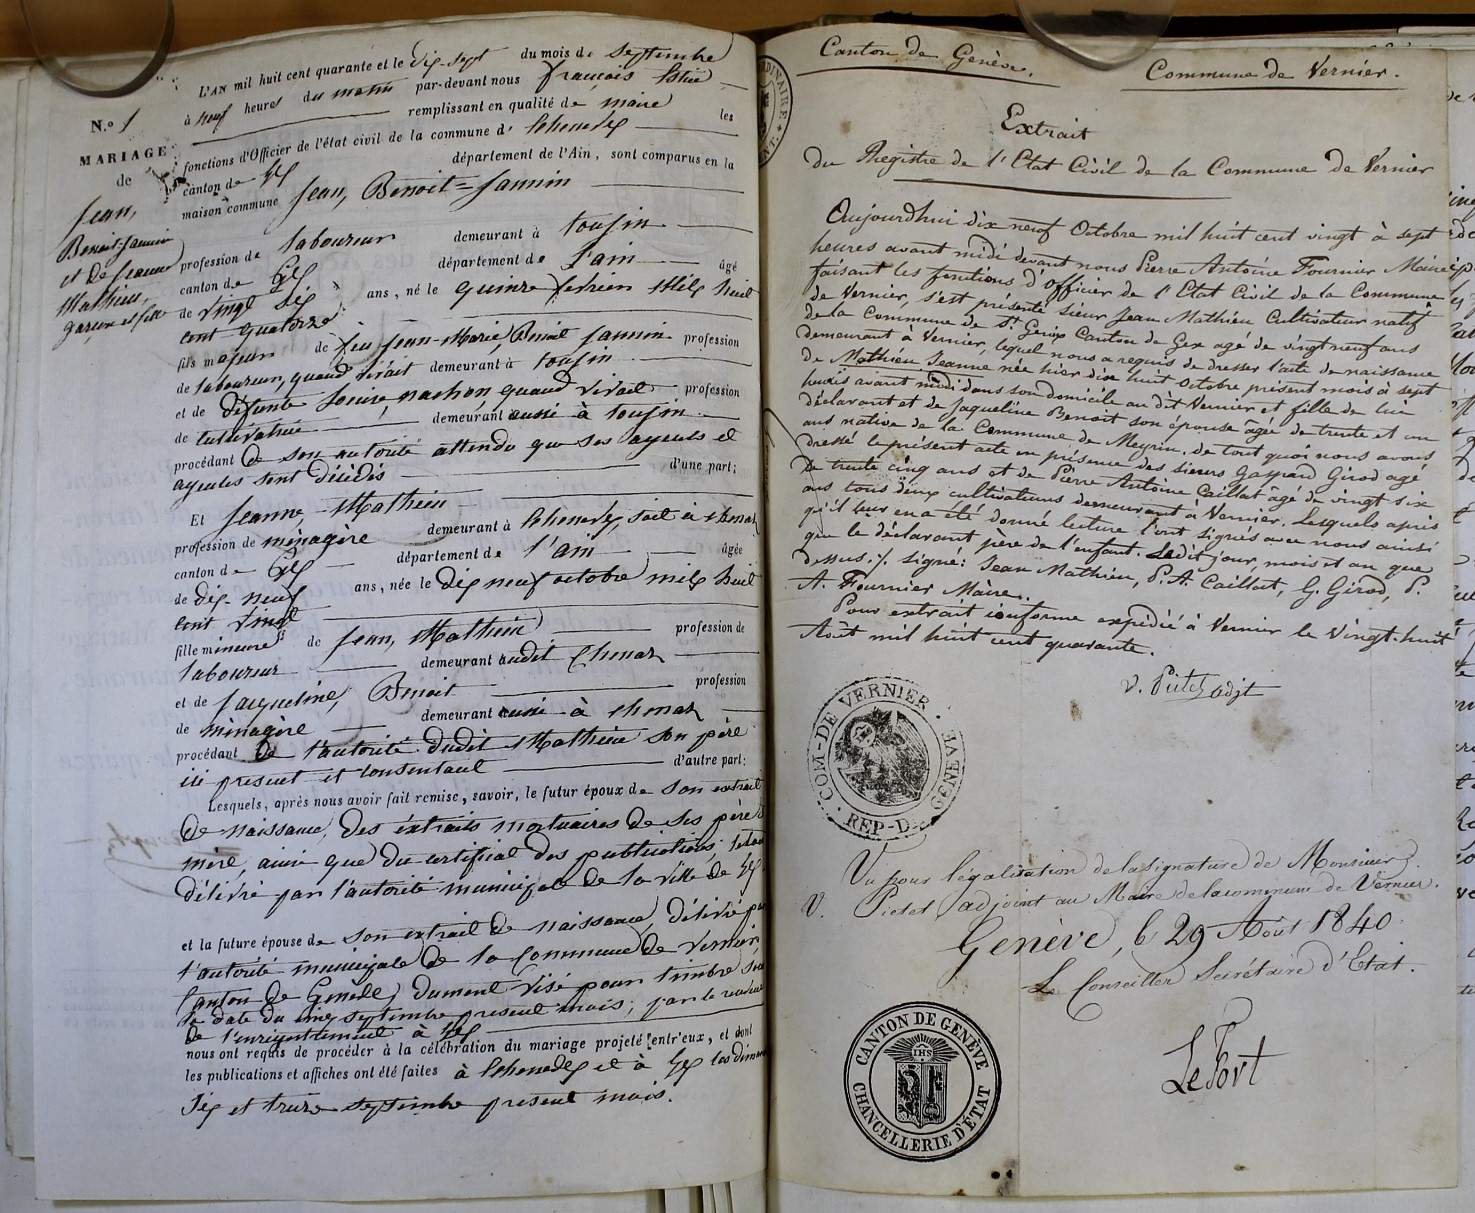 L'AN mil huit cent quarante et le dix-sept du mois de Septembre
à neuf heures du matin par-devant nous françois
remplissant en qualité de maire les
fonctions d'Officier de l'état civil de la commune d'
canton de Gex département de l'Ain, sont comparus en la
maison commune Jean, Benoit=Jannin
profession de laboureur demeurant à tougin
canton de Gex département de l'ain âgé
de vingt six ans, né le quinze fevrier Mil huit
cent quatorze
fils majeur de feu Jean-Marie Benoit Jannin profession
de laboureur, quand vivait demeurant à tougin
et de défunte quand vivait profession
de cultivatrice demeurant aussi à tougin
procédant de son autorité attendu que ses ayeuls et
ayeules sont décédés d'une part;
Et Jeanne, Mathieu
profession de ménagère demeurant à soit à
canton de Gex département de l'ain âgée
de dix-neuf ans, née le dix neuf octobre mil huit
cent vingt
fille mineure de Jean, Mathieu profession de
laboureur demeurant audit
et de Jacqueline, Benoit profession
de ménagère demeurant aussi à
procédant de l'autorité dudit Mathieu son père
ici présent et consentant d'autre part:
Lesquels, après nous avoir fait remise, savoir, le futur époux de son extrait
de naissance, des extraits mortuaires de ses père &
mère, ainsi que du certificat des publications,
délivré par l'autorité municipale de la ville de Gex
et la future épouse de son extrait de naissance délivré par
l'autorité municipale de la Commune de Vernier,
Canton de Genève, dument visé pour timbre sous
la date du cinq septembre présent mois, par le receveur
de l'enregistrement à Gex
nous ont requis de procéder à la célébration du mariage projeté entr'eux, et dont
les publications et affiches ont été faites à et à Gex les dimanches
six et treize septembre présent mois.
N.º 1
MARIAGE
de
Jean,
Benoit-Jannin
et de Jeanne
Mathieu,
garçon et fille
Canton de Genève. Commune de Vernier.
Extrait
du Registre de l'Etat Civil de la Commune de Vernier
Aujourdhui dix neuf Octobre mil huit cent vingt à sept
heures avant midi devant nous Pierre Antoine Fournier Maire
faisant les fonctions d'Officier de l'Etat Civil de la Commune
de Vernier, s'est présenté sieur Jean Mathieu Cultivateur natif
de la Commune de St Genix Canton de Gex agé de vingt neuf ans
demeurant à Vernier, lequel nous a requis de dresser l'acte de naissance
de Mathieu Jeanne née hier dix huit Octobre présent mois à sept
heures avant midi dans son domicile au dit Vernier et fille de lui
déclarant et de Jaqueline Benoit son épouse âgée de trente et un
ans native de la Commune de Meyrin. de tout quoi nous avons
dressé le présent acte en présence des sieurs Gaspard Girod agé
de trente cinq ans et de Pierre Antoine Caillat âgé de vingt six
ans tous deux cultivateurs demeurant à Vernier. Lesquels après
qu'il leur en a été donné lecture l'ont signés avec nous ainsi
que le déclarant père de l'enfant. Ledit jour, mois et an que
dessus. /. signé: Jean Mathieu, P. A. Caillat, G. Girod, P.
A. Fournier Maire.
Pour extrait conforme expedié à Vernier le Vingt-huit
Août mil huit cent quarante.
V. Pictet adjt
COM-DE VERNIER · REP-D-GENEVE ·
Vu pour légalisation de la signature de Monsieur
V. Pictet adjoint au Maire de la commune de Vernier.
Genève, le 29 Août 1840
Le Conseiller Secrétaire d'Etat.
LeFort
CANTON DE GENÈVE
IHS
CHANCELLERIE D'ÉTAT